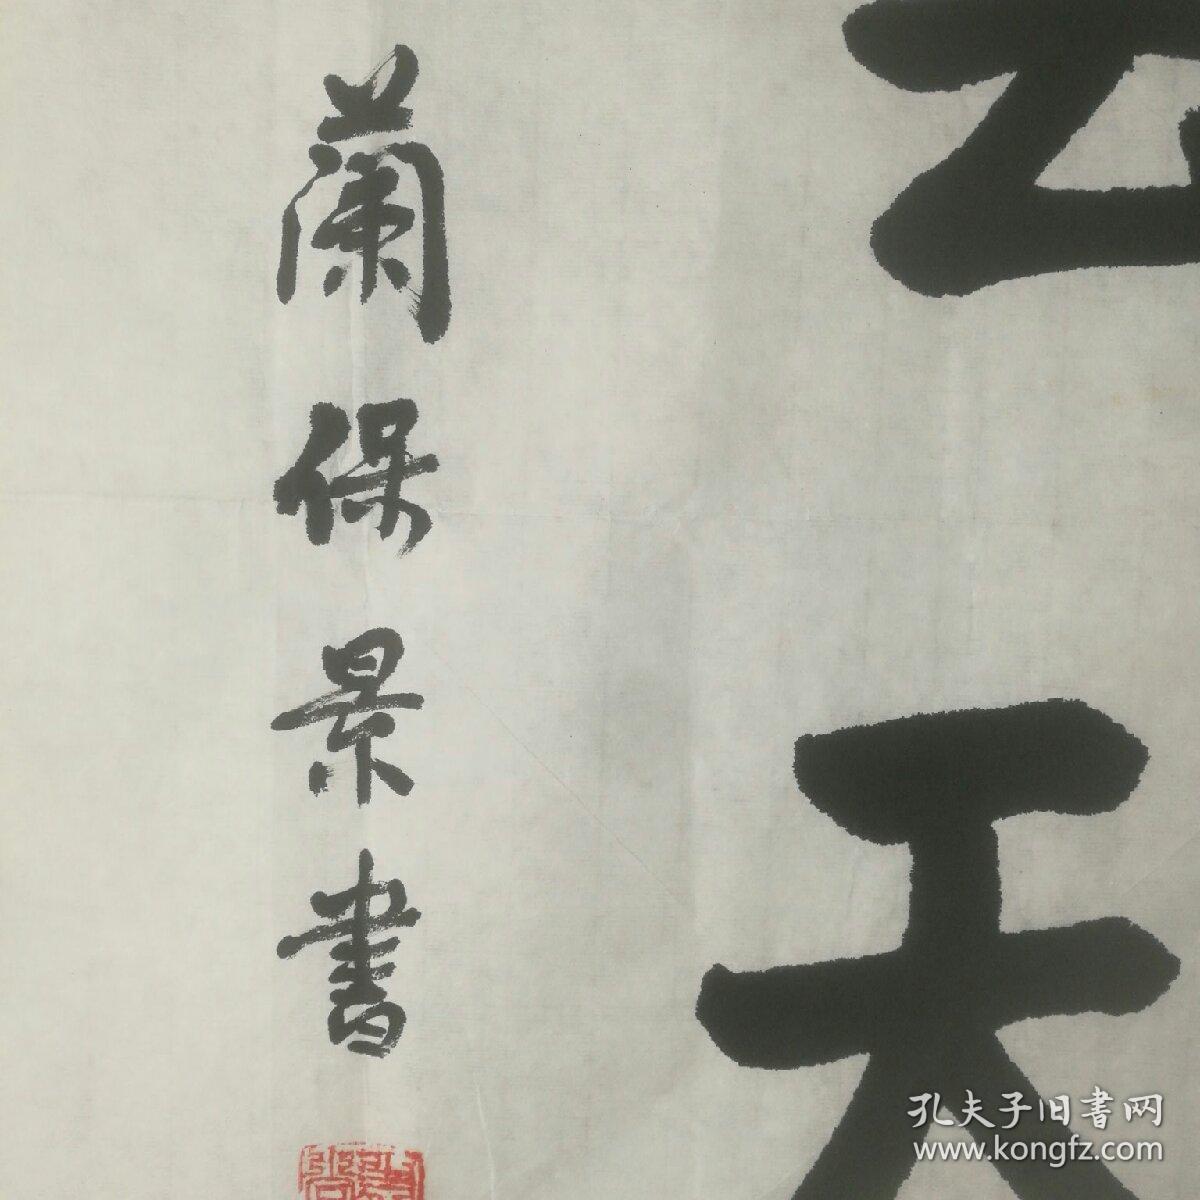 天
蘭保景書
孔夫子旧書网
www.kongfz.com